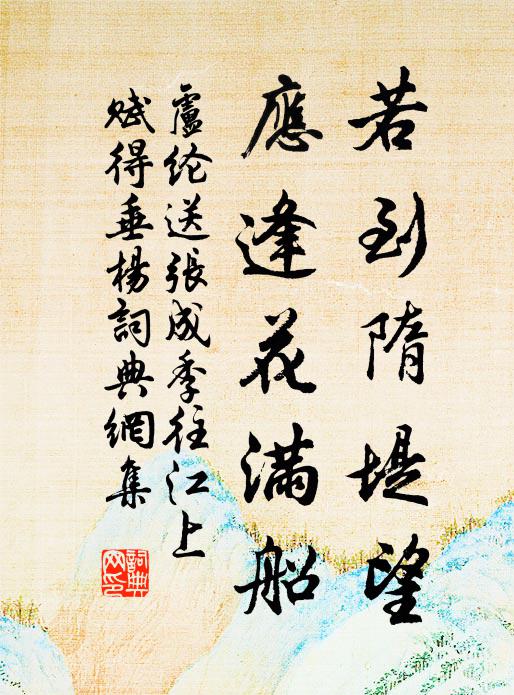 若到隋堤望
應逢花滿船
盧纶送張成季往江上
賦得垂楊詞典網集
詞典
网印